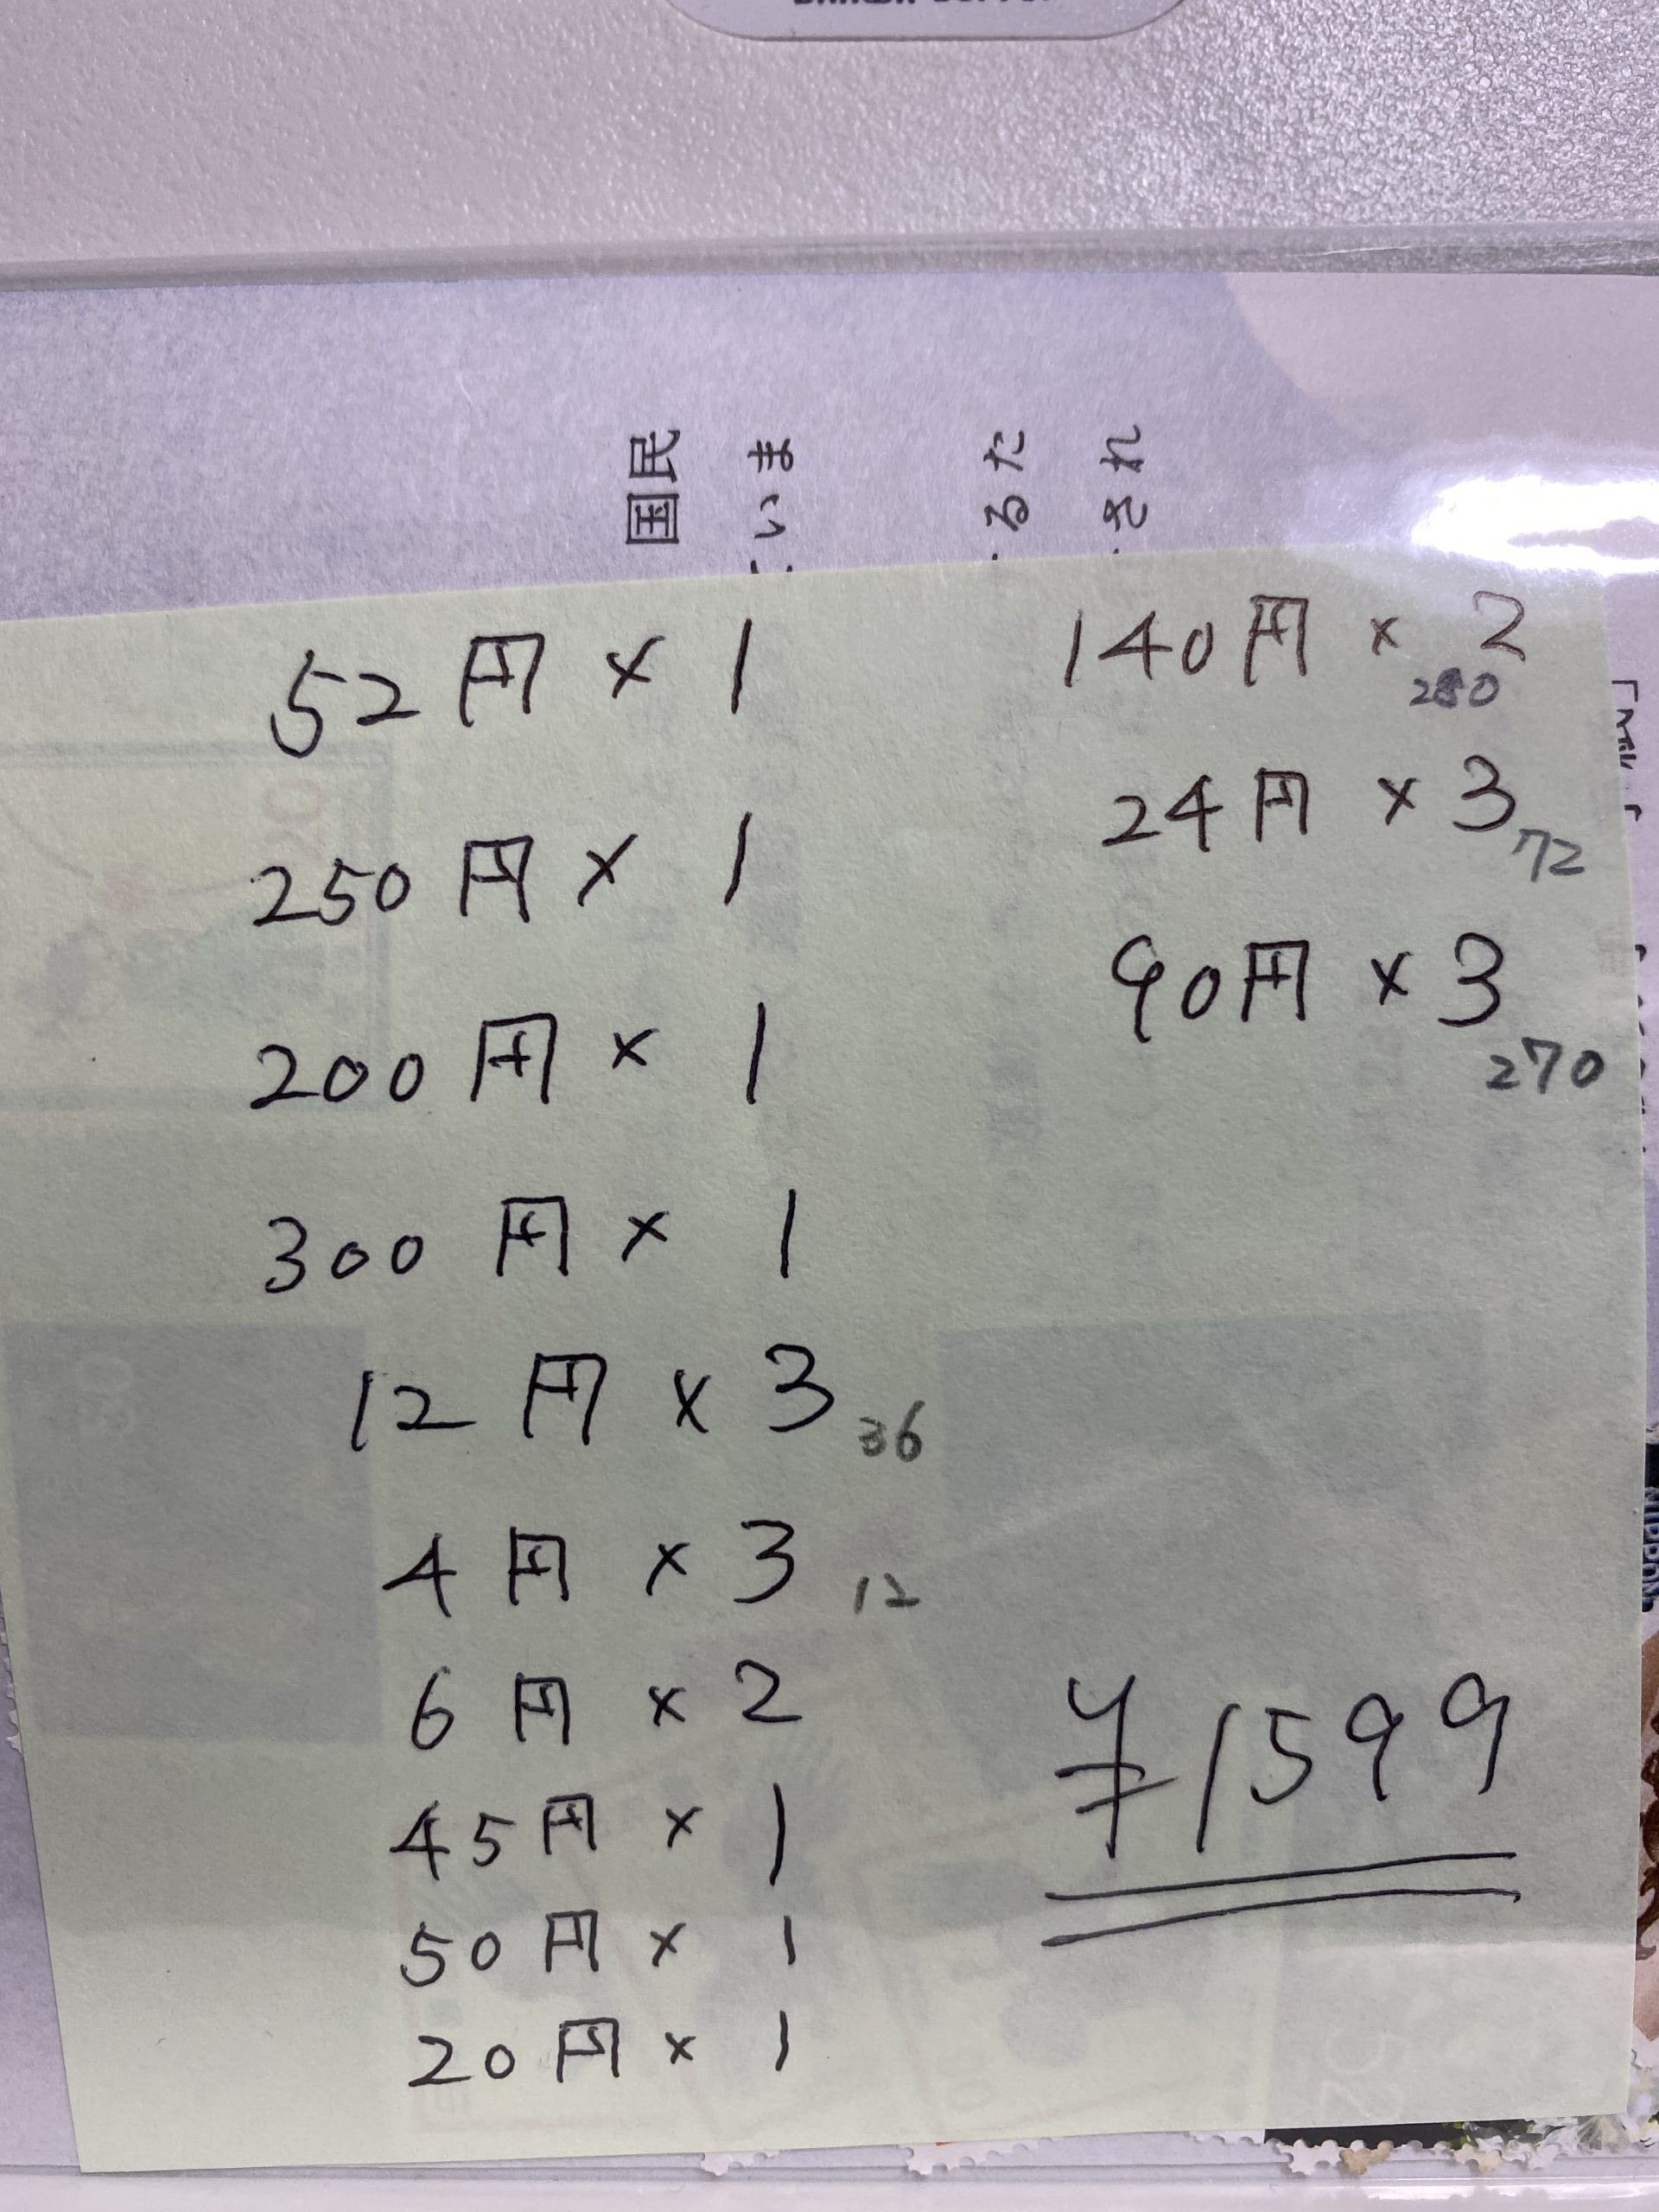 国民
いま
るた
され
52円×1
250円×1
200円×1
300円×1
12円×3 36
4円×3 12
6円×2
45円×1
50円×1
20円×1
140円×2
280
24円×3 72
90円×3 270
¥1599